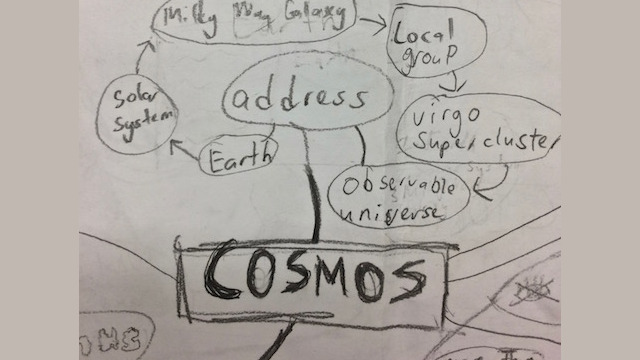 Milky Way Galaxy
Local
group
address
Solar
System
virgo
Supercluster
Earth
Observable
universe
COSMOS